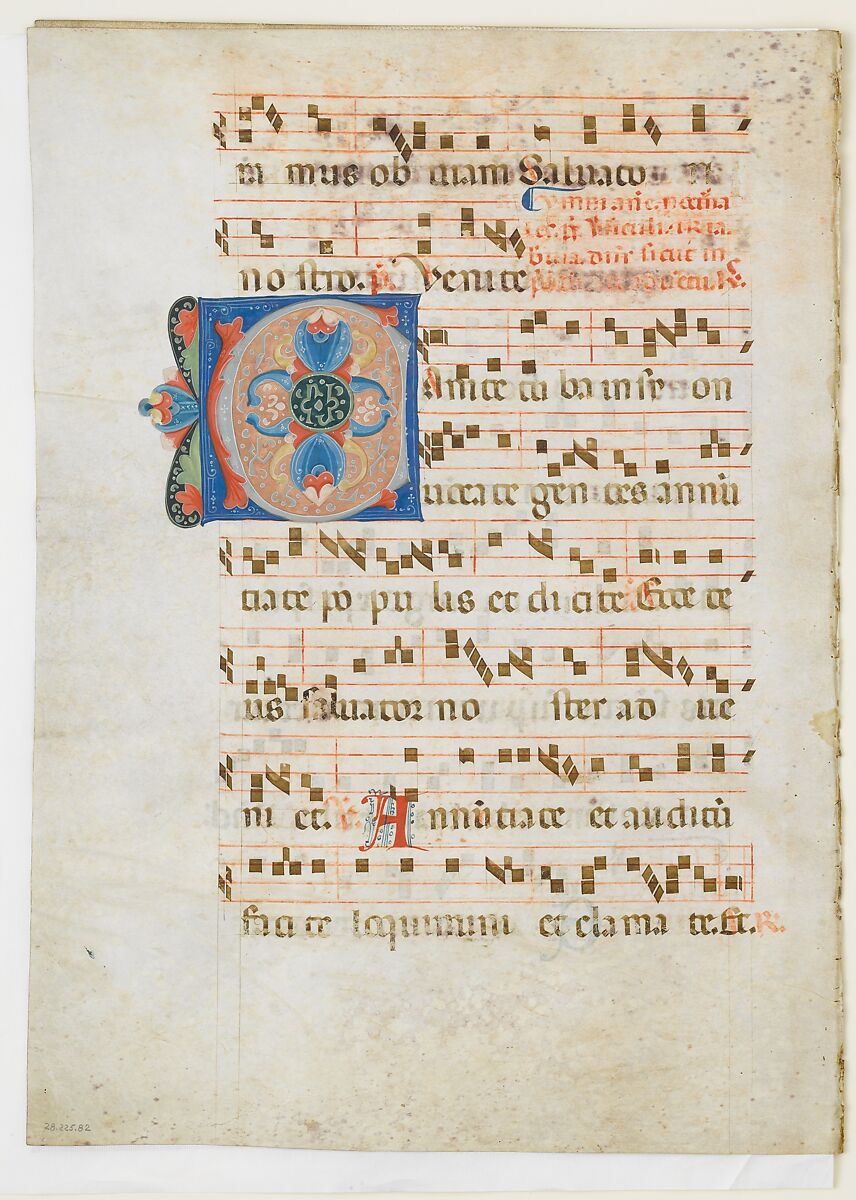 ni mus ob uiam Saluato ri
no stro. Venite
C Anite tu ba in sy on
uocate gen tes annū
tiate po pu lis et dicite Ecce de
us saluator no ster ad ue
ni et. Annūtiate et auditū
faci te loquimini et clama te. Et. R.
28.225.82